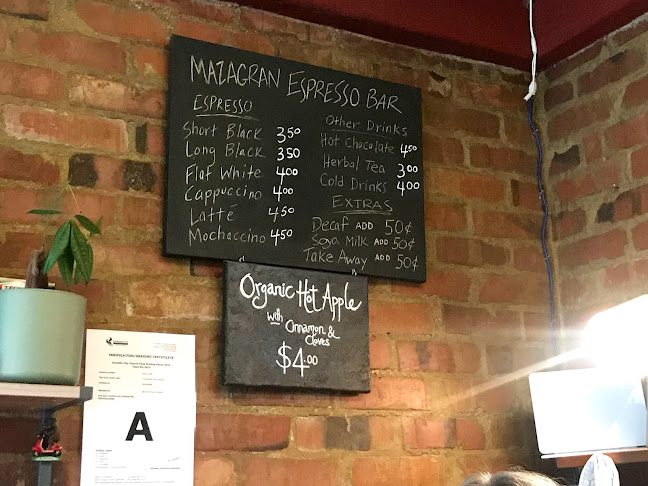 MAZAGRAN ESPRESSO BAR
ESPRESSO
Short Black 3.50
Long Black 3.50
Flat White 4.00
Cappuccino 4.00
Latté 4.50
Mochaccino 4.50
Other Drinks
Hot Chocolate 4.50
Herbal Tea 3.00
Cold Drinks 4.00
EXTRAS
Decaf ADD 50¢
Soya Milk ADD 50¢
Take Away ADD 50¢
Organic Hot Apple
with Cinnamon &
Cloves
$4.00
A